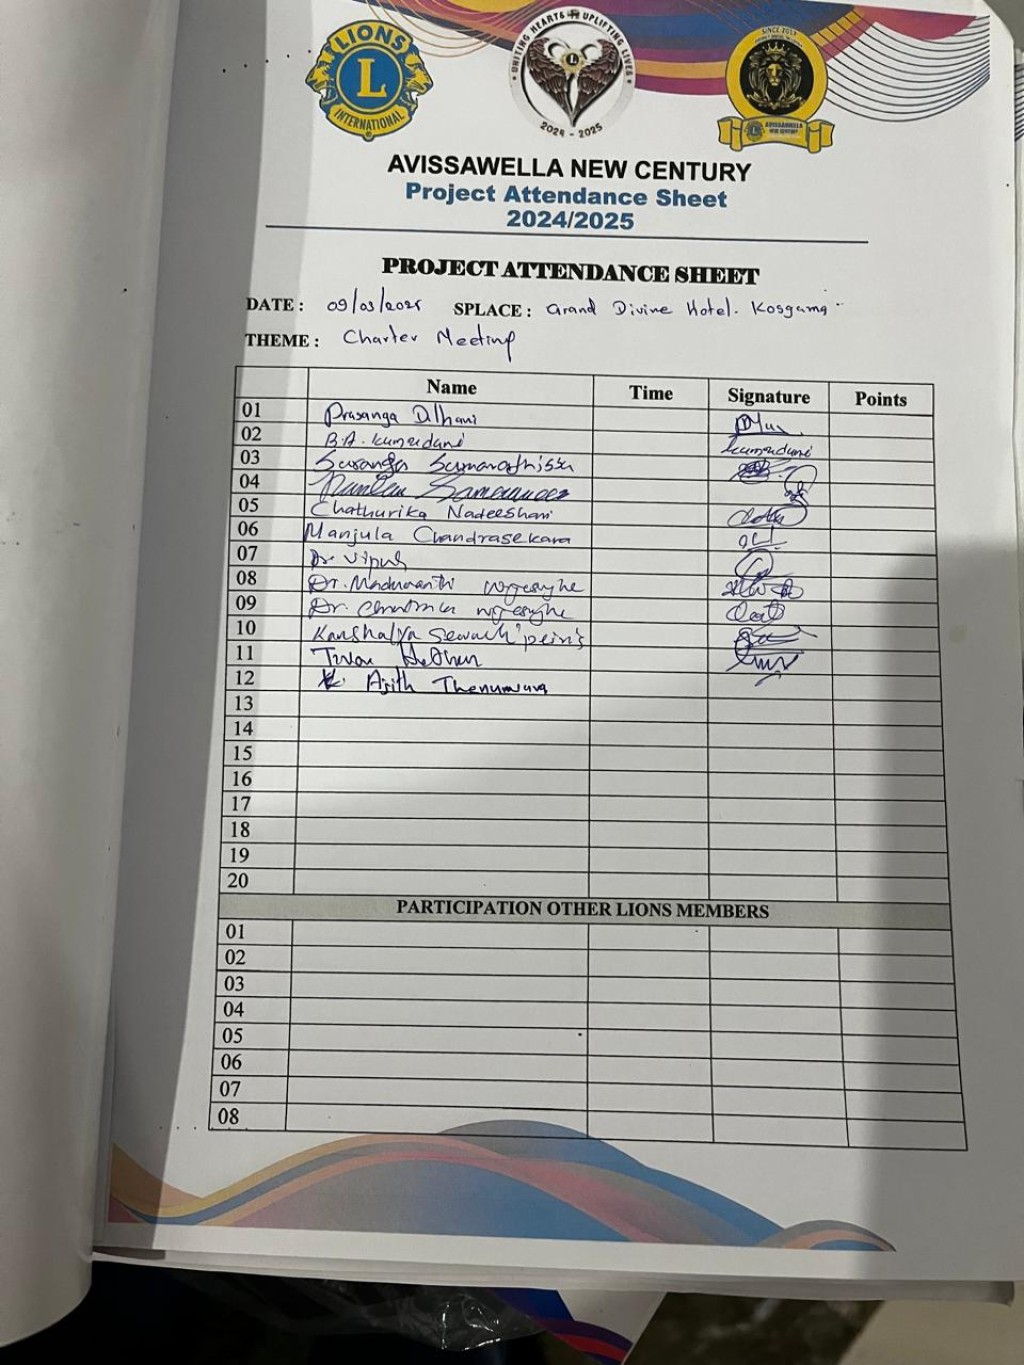 LIONS
L
INTERNATIONAL
UNITING HEARTS UPLIFTING LIVES
2024 - 2025
SINCE 2017
AVISSAWELLA
NEW CENTURY
AVISSAWELLA NEW CENTURY
Project Attendance Sheet
2024/2025
PROJECT ATTENDANCE SHEET
DATE : 09/03/2025 SPLACE : Grand Divine Hotel. Kosgama
THEME : Charter Meeting
Name Time Signature Points
01 Prasanga Dilhani
02 B.A. Kumudani Kumudani
03 Suranga Sumarathissa
04
05 Chathurika Nadeeshani
06 Manjula Chandrasekara
07 Dr Vipul
08 Dr. Madumanthi Wijesinghe
09 Dr. Wijesinghe
10 Kaushalya
11
12 Ajith Thenuwara
13
14
15
16
17
18
19
20
PARTICIPATION OTHER LIONS MEMBERS
01
02
03
04
05
06
07
08